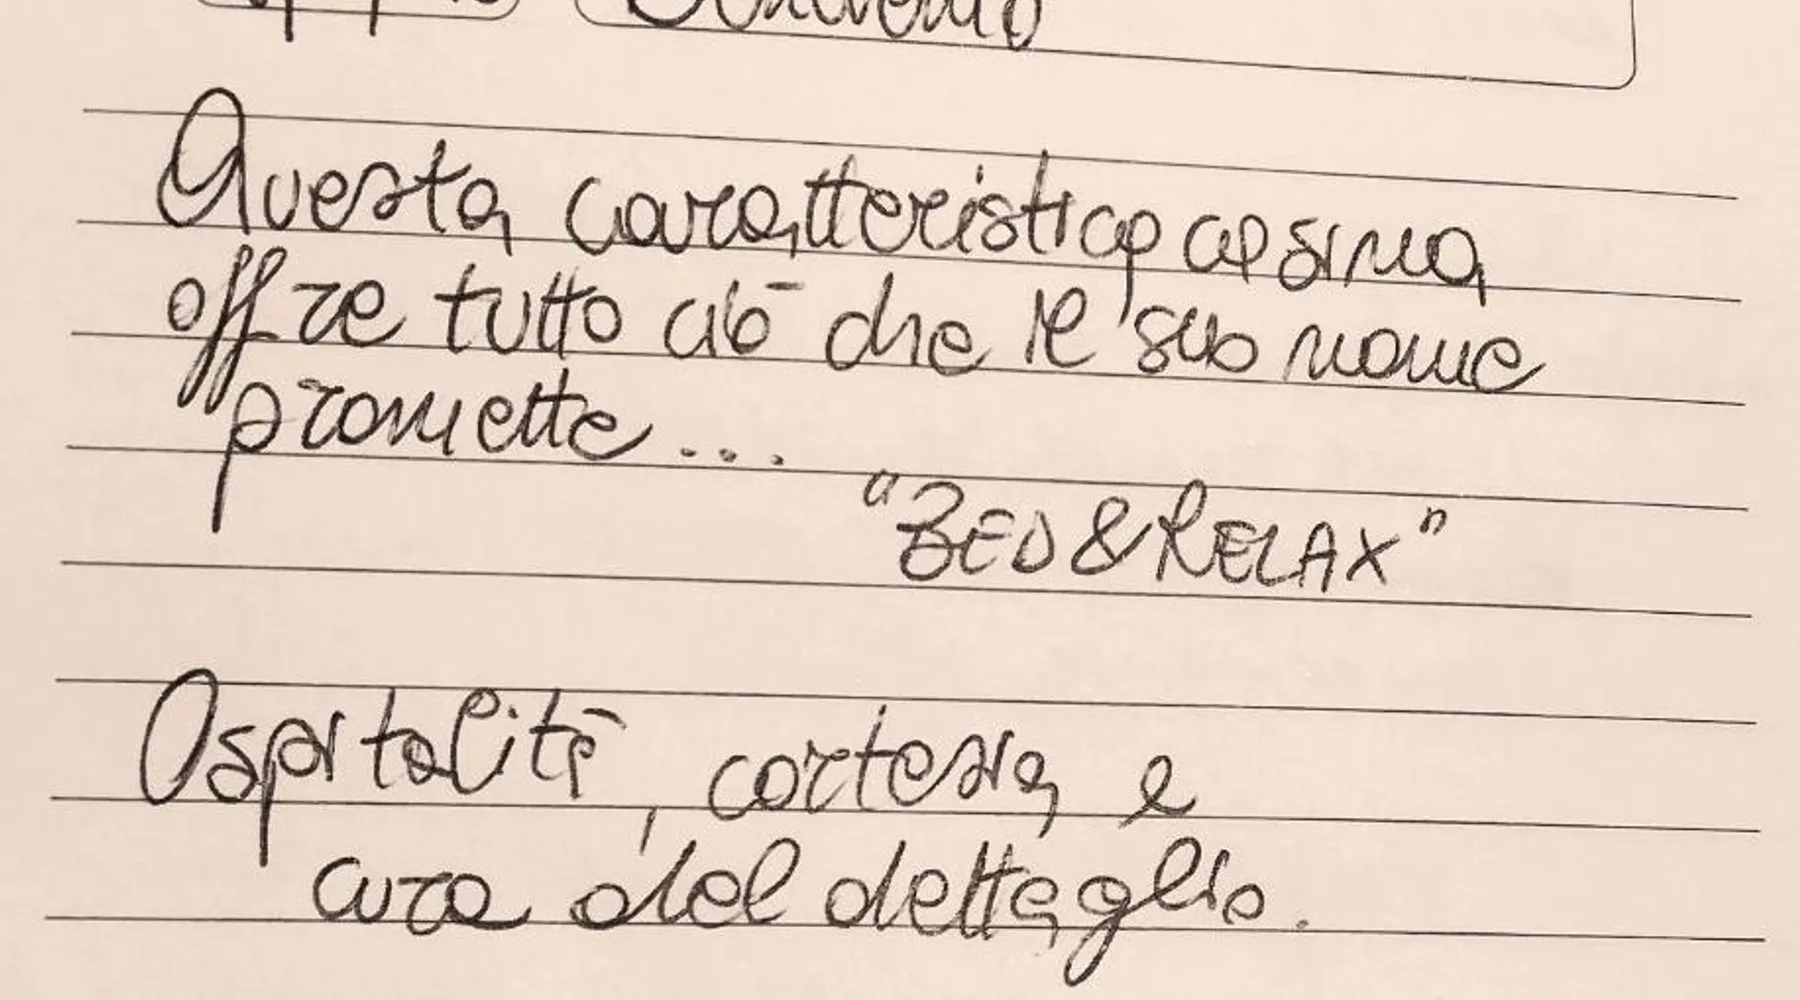 Questa caratteristica casina
offre tutto ciò che il suo nome
promette...
"BED&RELAX"
Ospitalità, cortesia e
cura del dettaglio.